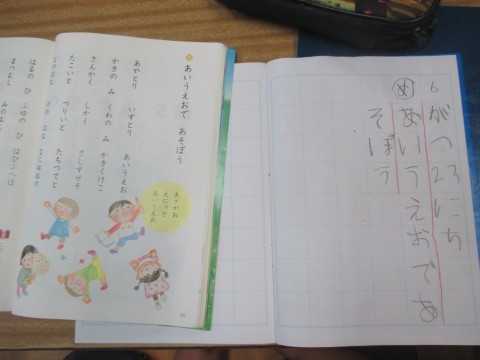 6がつ23にち
め あいうえおであ
そぼう
あいうえおで あそぼう
あやとり いすとり あいうえお
かきの み くわの み かきくけこ
さんかく しかく さしすせそ
たこいと つりいと たちつてと
はるの ひ ふゆの ひ はひふへほ
まつむし
あさがお
えにっき
あいうえお